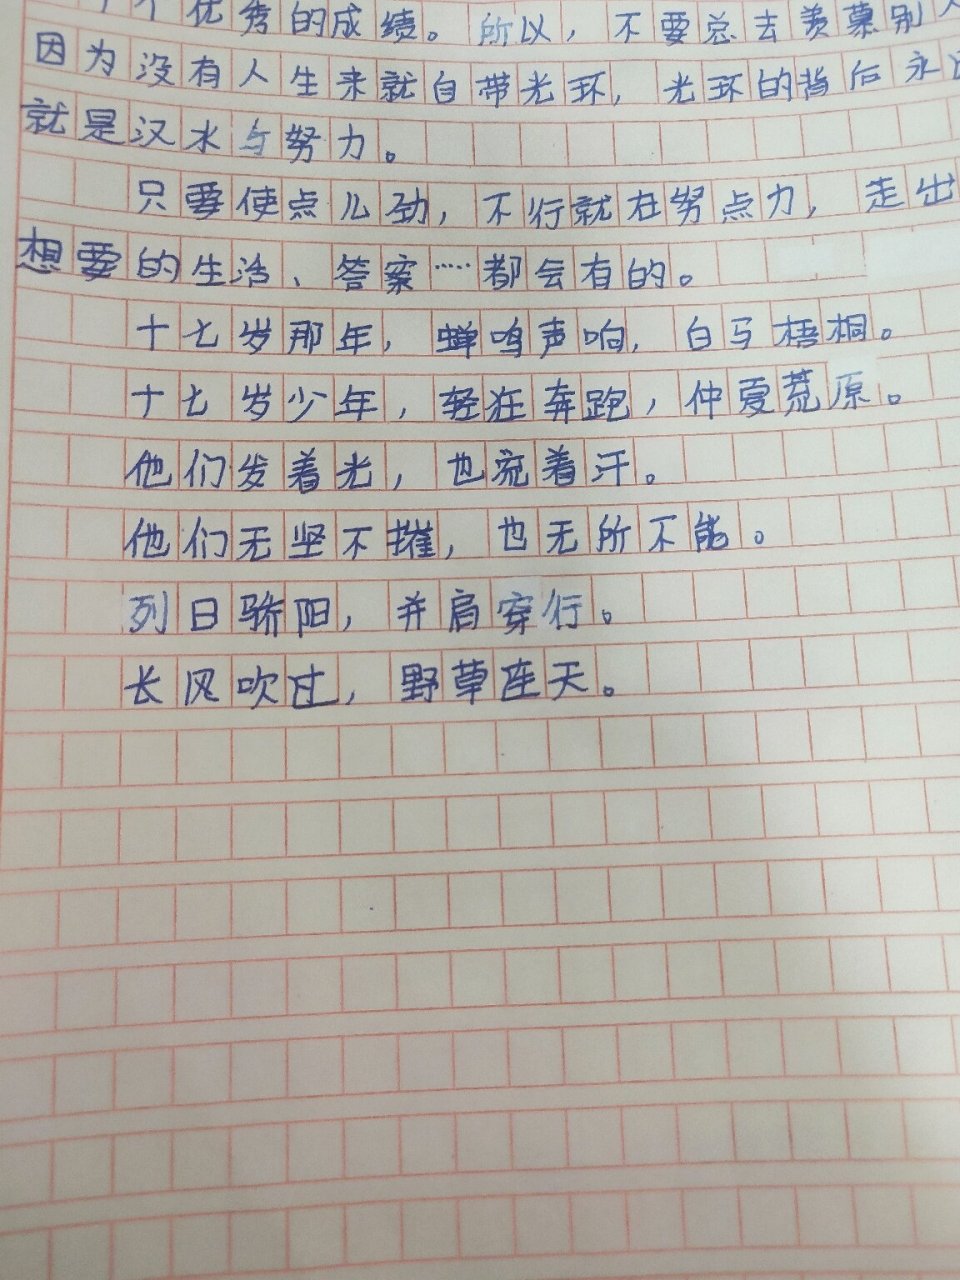 个优秀的成绩。所以，不要总去羡慕别人
因为没有人生来就自带光环，光环的背后永远
就是汉水与努力。
只要使点儿劲，不行就在努点力，走出
想要的生活、答案……都会有的。
十七岁那年，蝉鸣声响，白马梧桐。
十七岁少年，轻狂奔跑，仲夏荒原。
他们发着光，也流着汗。
他们无坚不摧，也无所不能。
列日骄阳，并肩穿行。
长风吹过，野草连天。